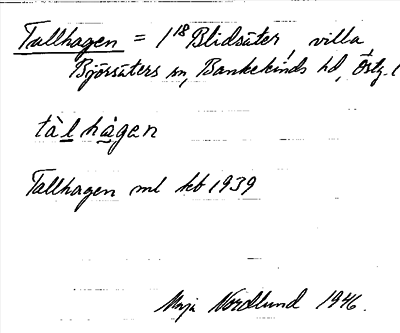 Tallhagen = 1¹⁸ Blidsäter, villa
Björsäters sn, Bankekinds hd, Östg. l
tàl hàgen
Tallhagen ml kb 1939
Maja Nordlund 1946.